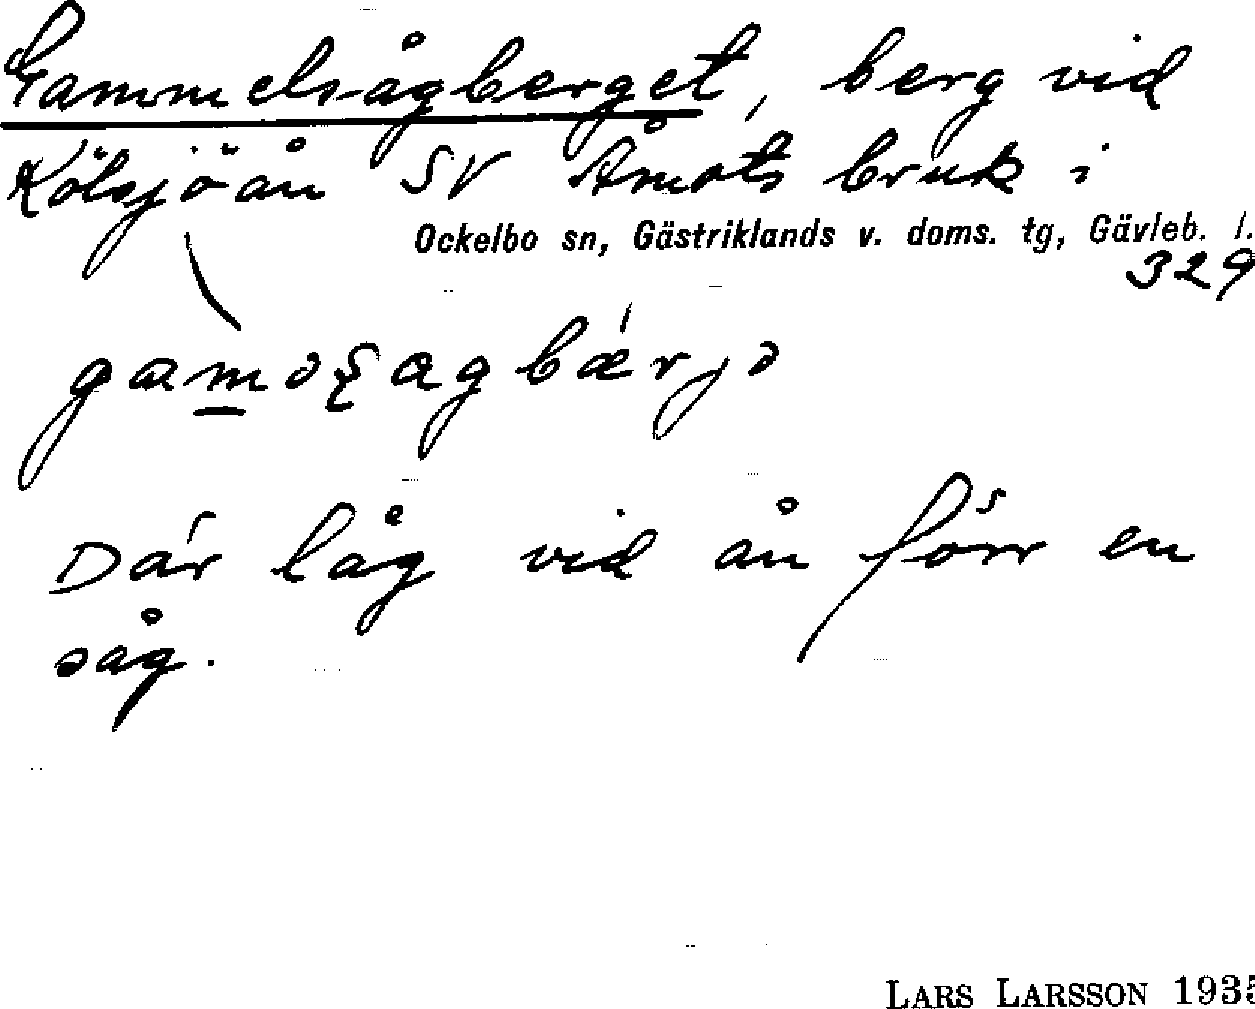 Gammelsågberget, berg vid
Kölsjöån SV Åmots bruk i
Ockelbo sn, Gästriklands v. doms. tg, Gävleb. l.
329
Där låg vid ån förr en
såg.
LARS LARSSON 1935